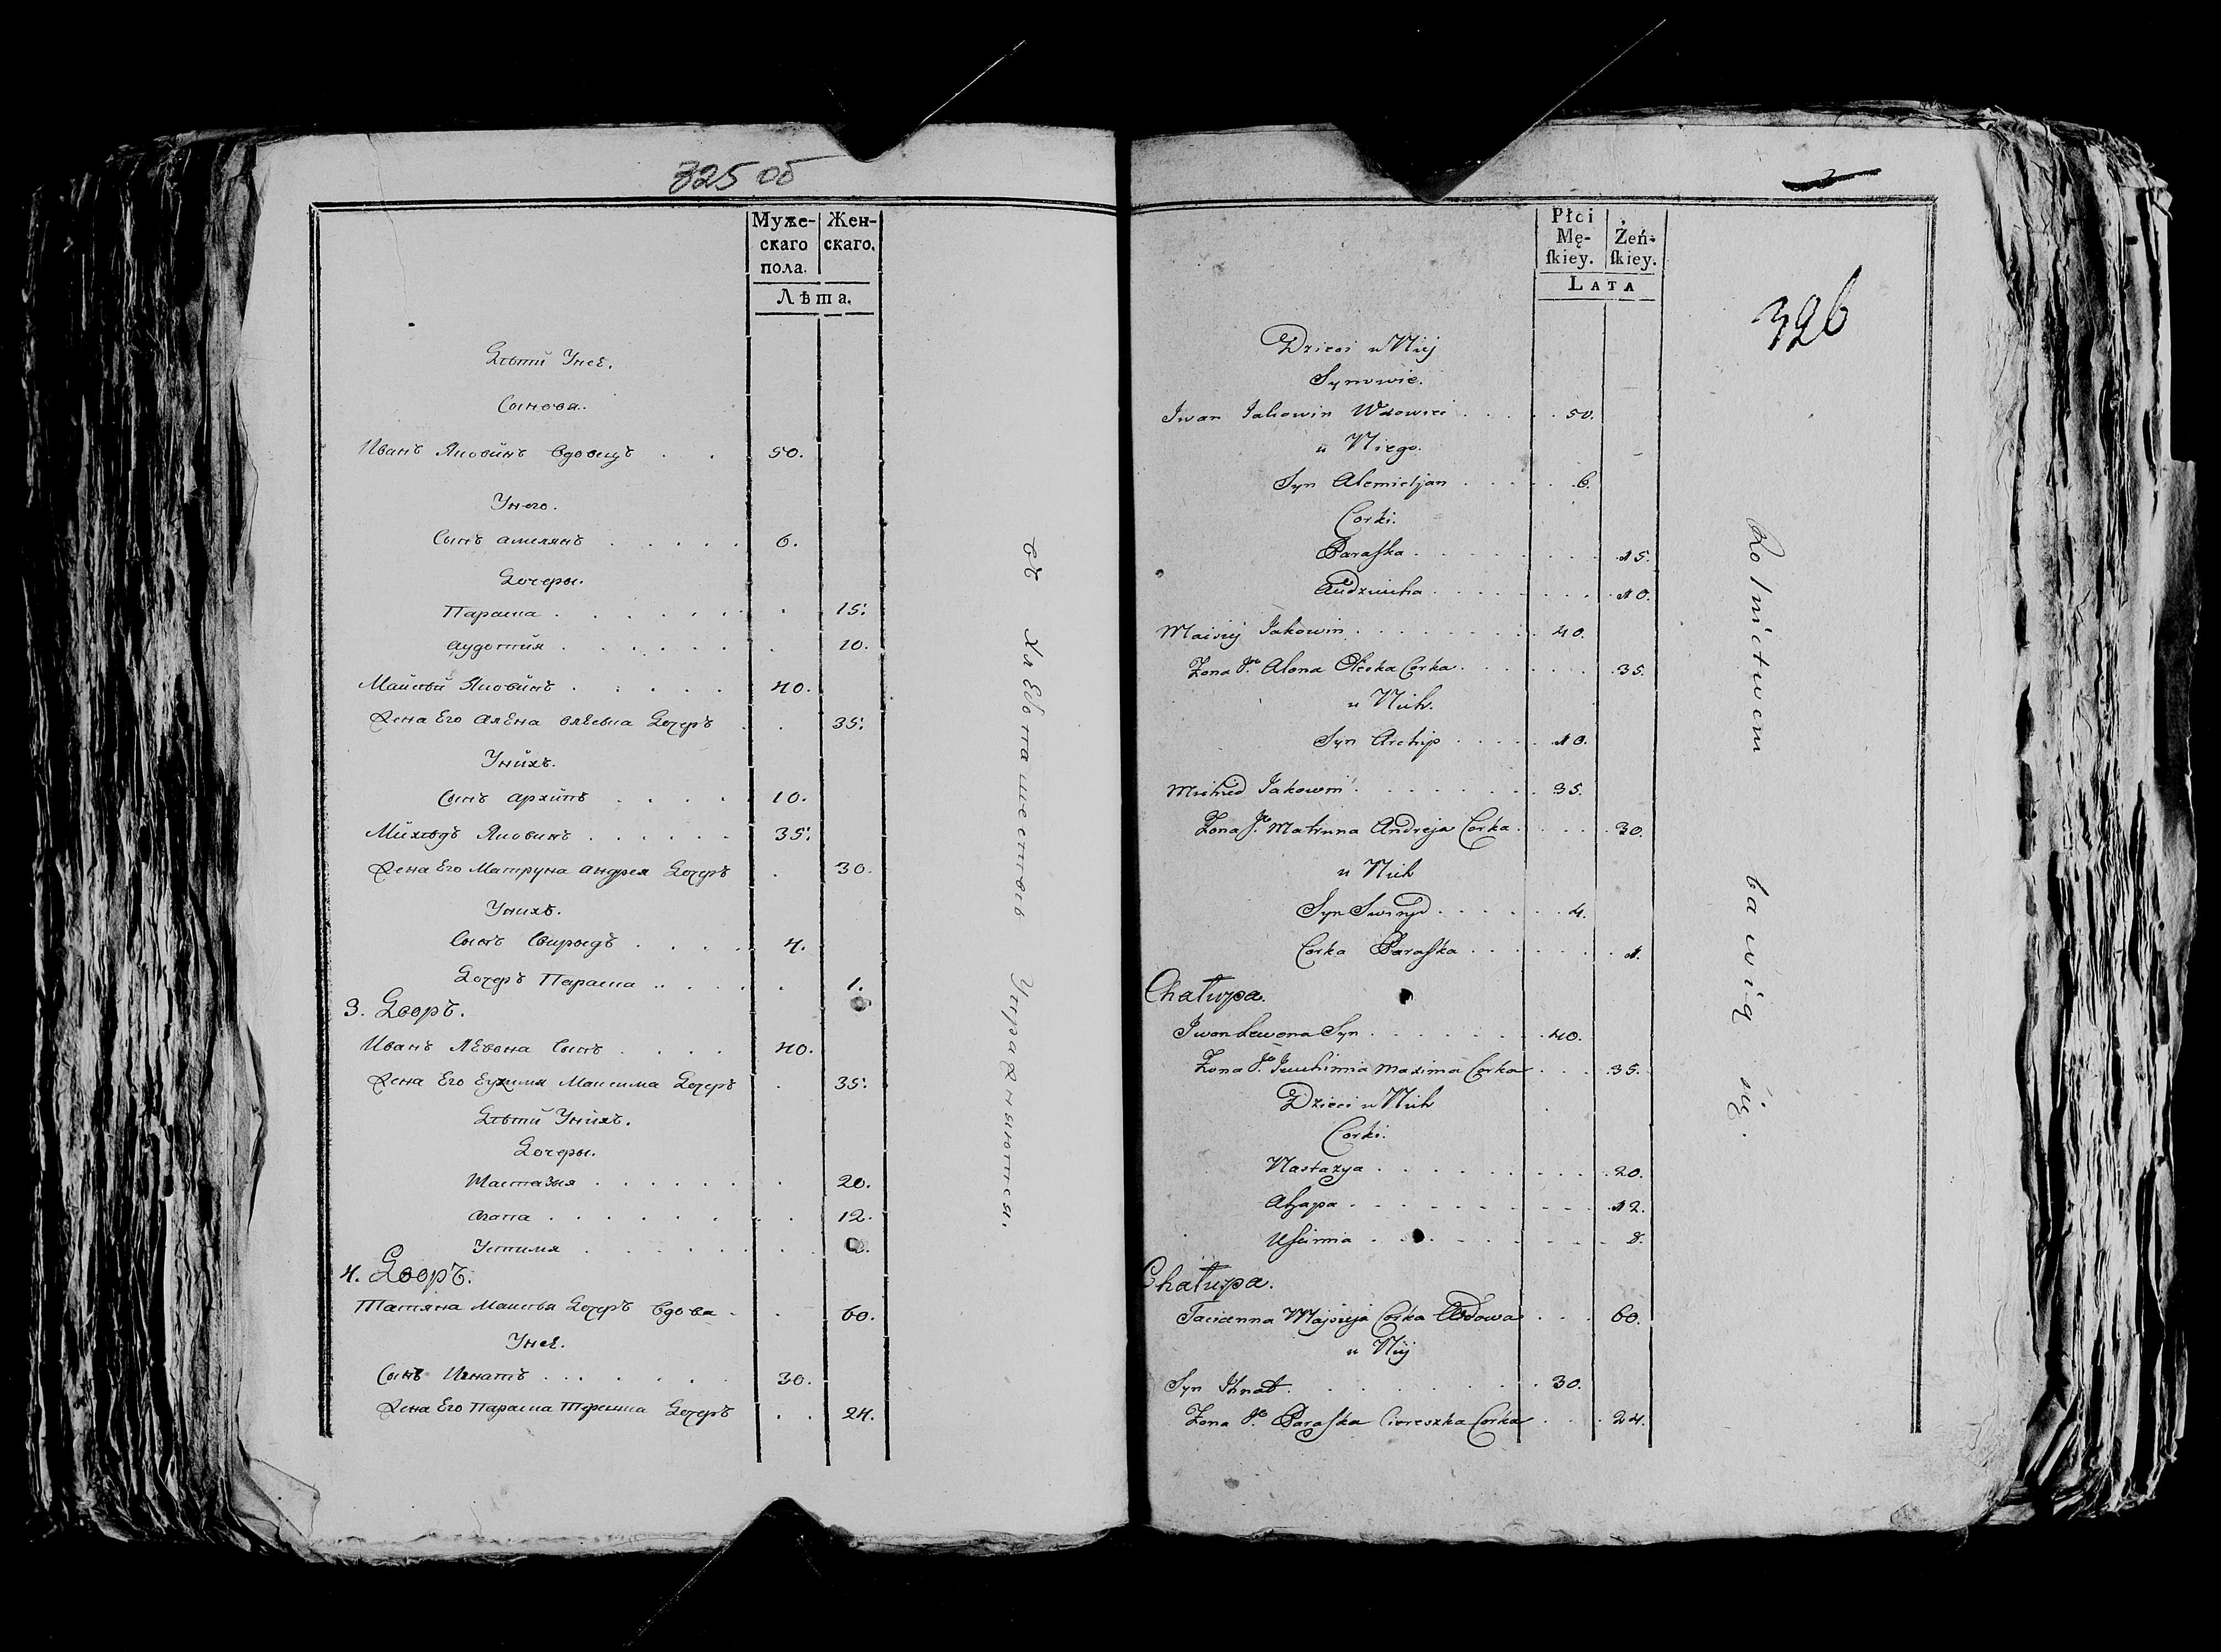 325 об
Муже- Жен-
скаго скаго.
пола.
Лѣта.
Дѣти Унеѣ.
Сынова.
Иванъ Яковинъ вдовецъ . . 50.
Унего.
Сынъ амелянъ . . . . . 6.
Дочеры.
Параска . . . . . . . 15.
аудотия . . . . . . . 10.
Майсѣй Яковинъ . . . . . 40.
Жена Его алЕна Дочеръ . . 35.
Унихъ.
Сынъ архипъ . . . . 10.
Яковинъ . . . . . . 35.
Жена Его Матруна андрея Дочеръ . 30.
Унихъ.
Сынъ Свирыдъ . . . . 4.
Дочеръ Параска . . . . . 1.
3. Дворъ.
Иванъ ЛЕвона Сынъ . . . . 40.
Жена Его Еухимя Максима Дочеръ . 35.
Дѣти Унихъ.
Дочеры.
Настазыя . . . . . . . 20.
Агапа . . . . . . . . 12.
Устимя . . . . . . .
4. Дворъ.
Татяна Майсѣя Дочеръ вдова . . 60.
Унеѣ.
Сынъ Игнатъ . . . . . . . 30.
Жена Его Параска Дочеръ . . 24.
Упражняются.
Płci
Mę- Żeń-
ſkiey. ſkiey.
LATA
326
Dzieci u Niij
Synowie.
Iwan Jakowin Wdowiec . . . . . 50.
u Niego.
Syn Alemieljan . . . . . 6.
Corki.
Paraſka . . . . . . . . . 15.
Audziucha . . . . . . . . 10.
Maisiej Jakowin . . . . . . . . 40.
Zona Jo Alona Corka . . . . . 35.
u Nich.
Syn Archip . . . . . 10.
Jakowin . . . . . . . . 35.
Zona Jo Matruna Andreja Corka . . . . 30.
u Nich
Syn Swiryd . . . . . . 4.
Corka Paraſka . . . . . . . 1.
Chałupa.
Iwan Lewona Syn . . . . . . . 40.
Zona Jo Jeuchimia Maxima Corka . . . 35.
Dzieci u Nich
Corki.
Nastazya . . . . . . . . . 20.
Ahapa . . . . . . . . . 12.
Uſcimia . . . . . . . . . 8.
Chałupa.
Tacianna Majsieja Corka Wdowa . . . 60.
u Niij
Syn Ihnat . . . . . . . . . 30.
Zona Jo Paraſka Corka . . . 24.
Rolnictwem bawią się.